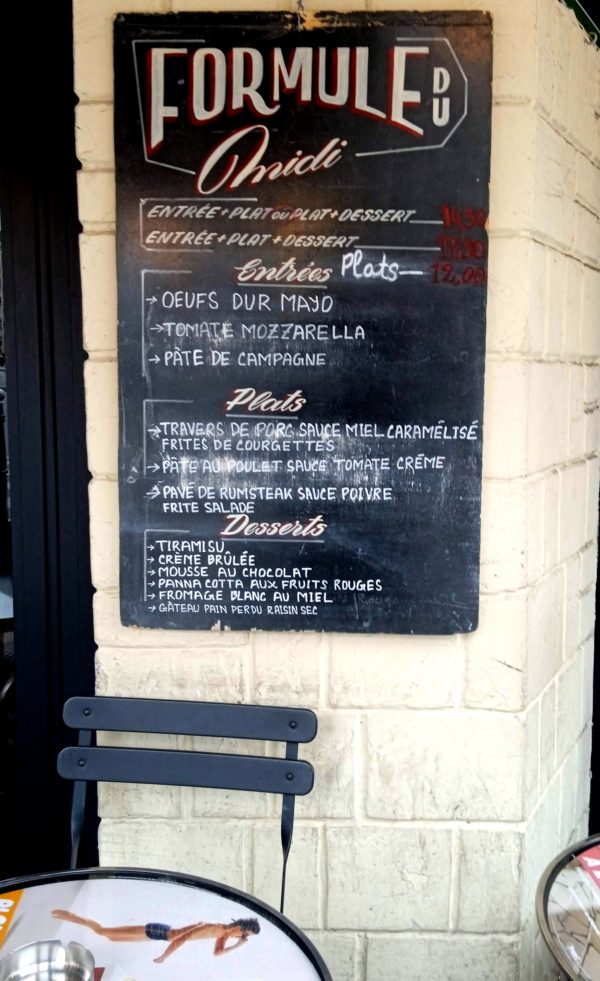 FORMULE DU
midi
ENTRÉE + PLAT OU PLAT + DESSERT
ENTRÉE + PLAT + DESSERT
Entrées Plats 12,00
→ OEUFS DUR MAYO
→ TOMATE MOZZARELLA
→ PÂTE DE CAMPAGNE
Plats
→ TRAVERS DE PORC SAUCE MIEL CARAMÉLISÉ
FRITES DE COURGETTES
→ PÂTE AU POULET SAUCE TOMATE CRÉME
→ PAVÉ DE RUMSTEAK SAUCE POIVRE
FRITE SALADE
Desserts
→ TIRAMISU
→ CRÈME BRÛLÉE
→ MOUSSE AU CHOCOLAT
→ PANNA COTTA AUX FRUITS ROUGES
→ FROMAGE BLANC AU MIEL
→ GÂTEAU PAIN PERDU RAISIN SEC